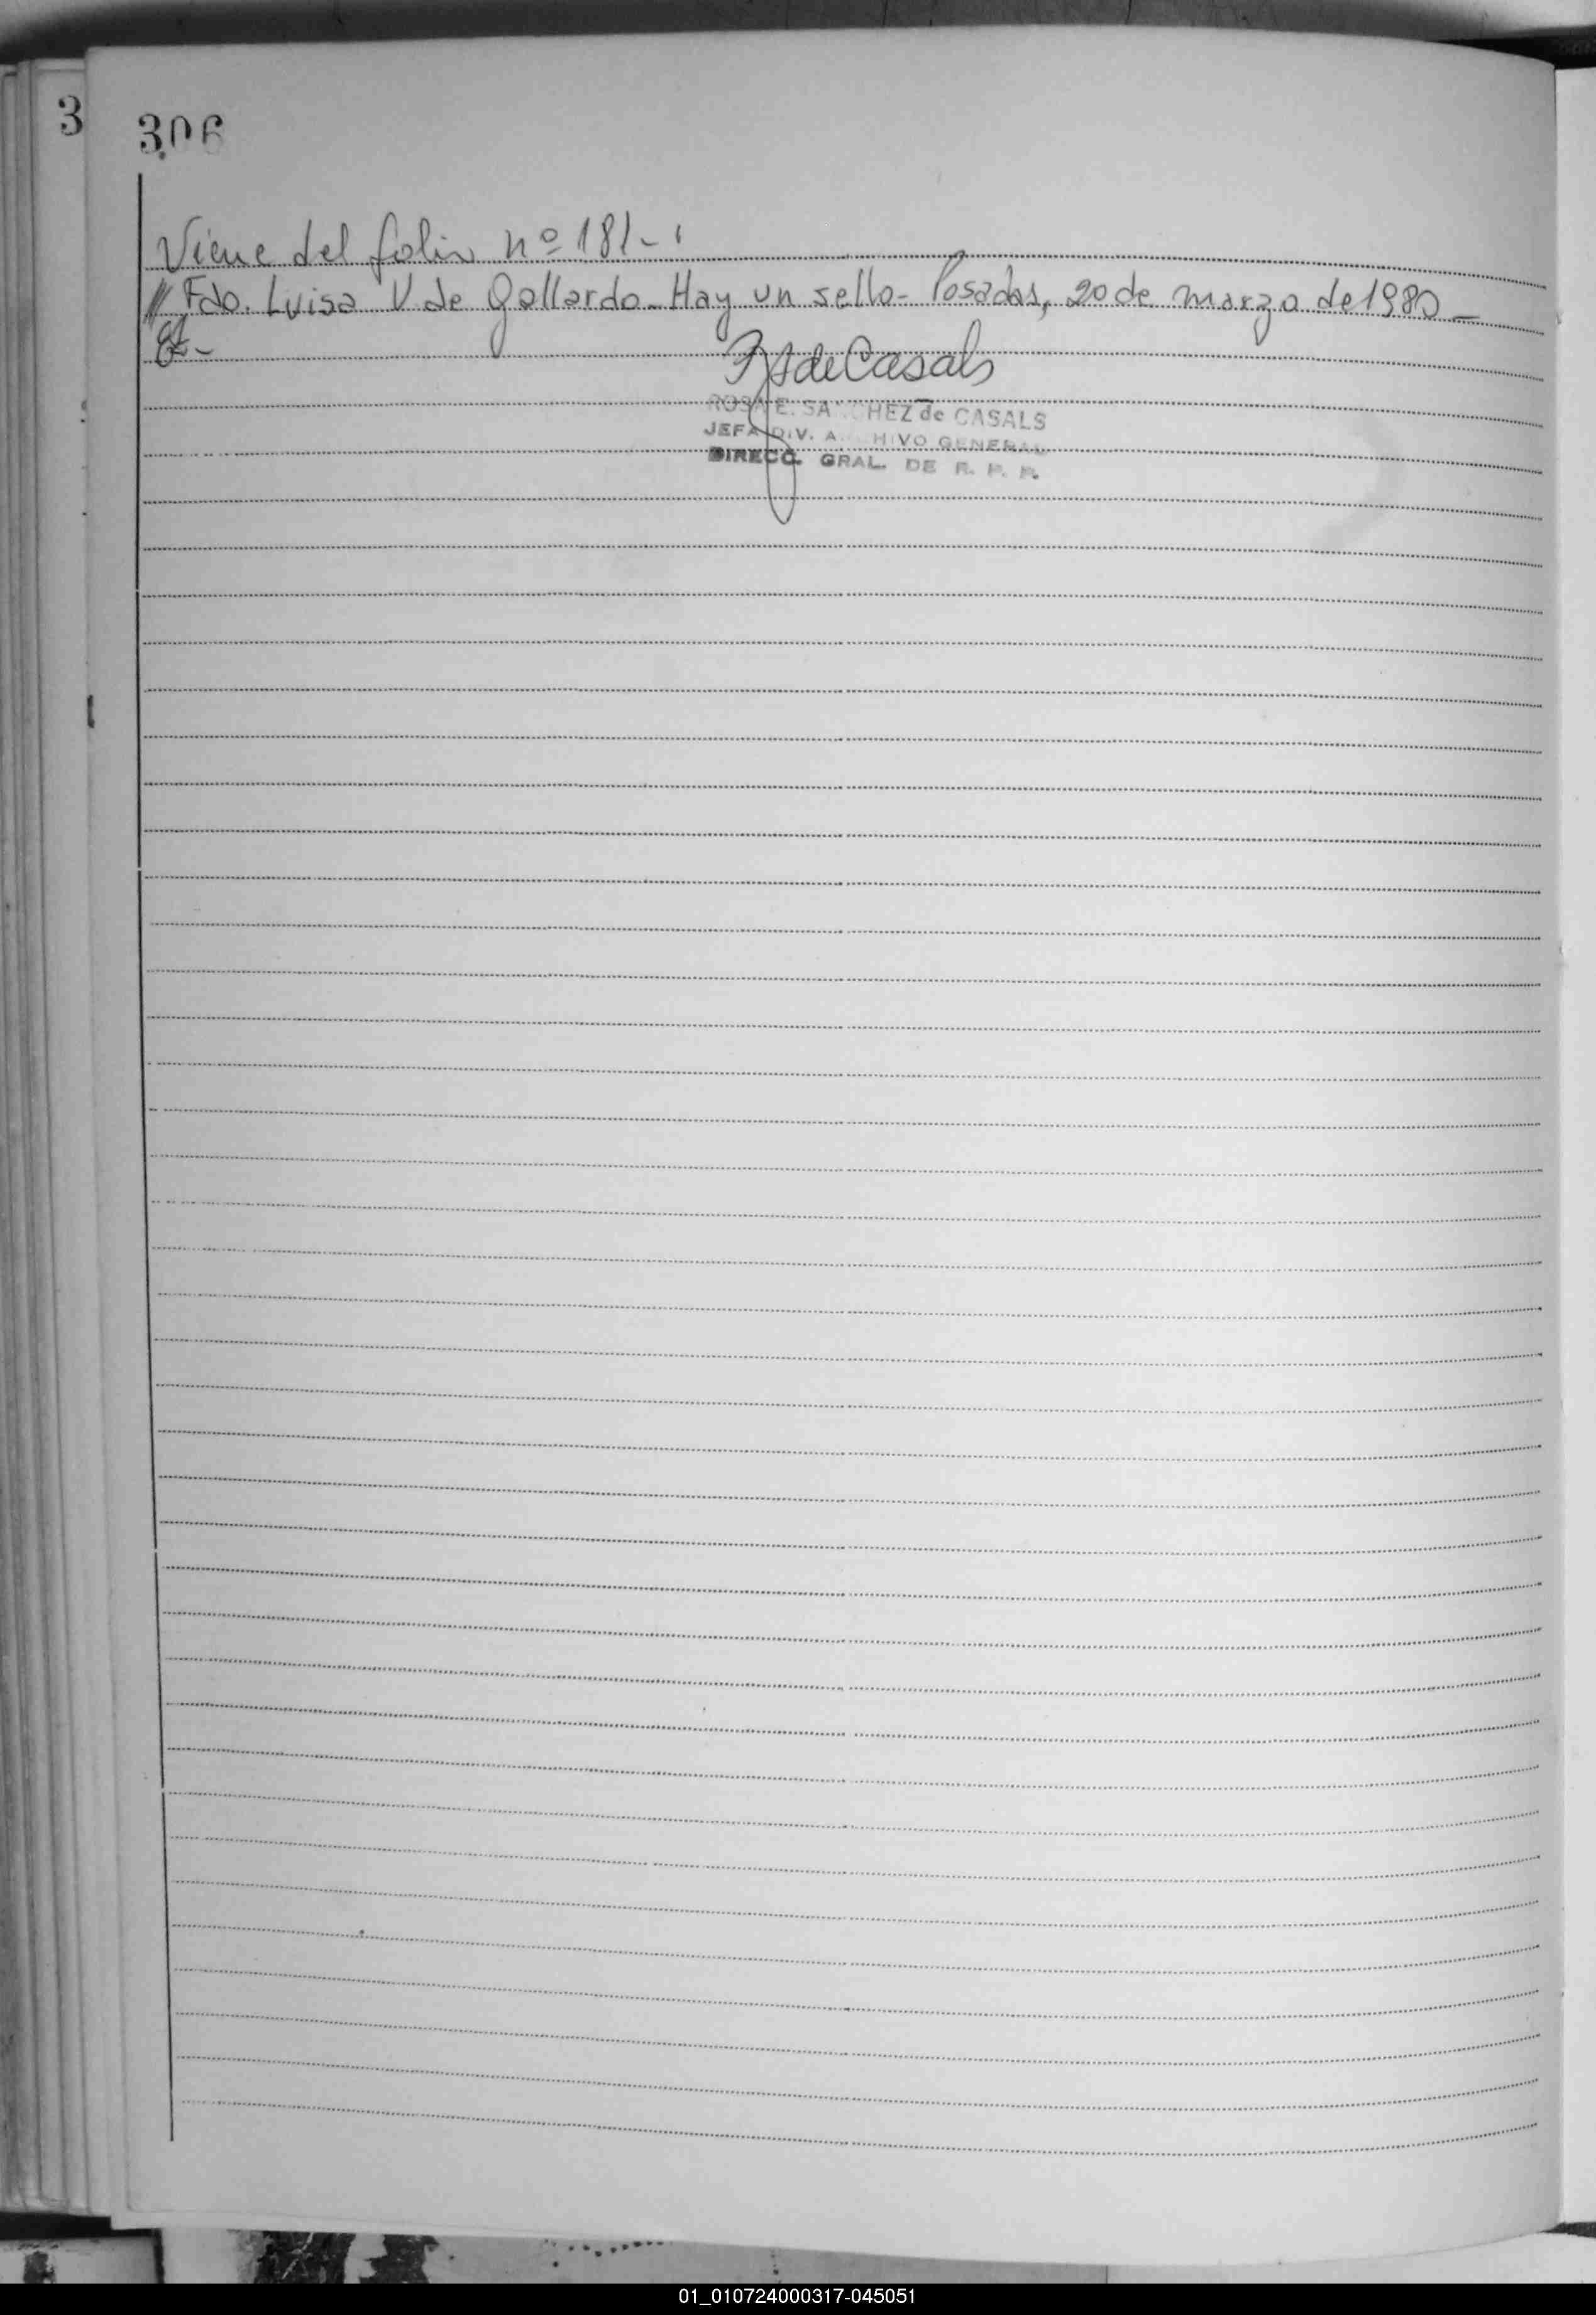 3
306
Viene del folio nº 181-
// Fdo. Luisa V. de Gallardo - Hay un sello - Posadas, 20 de marzo de 1980 -
de Casals
ROSA E. SANCHEZ de CASALS
JEFA DIV. ARCHIVO GENERAL
DIRECC. GRAL. DE R. P. P.
01_010724000317-045051